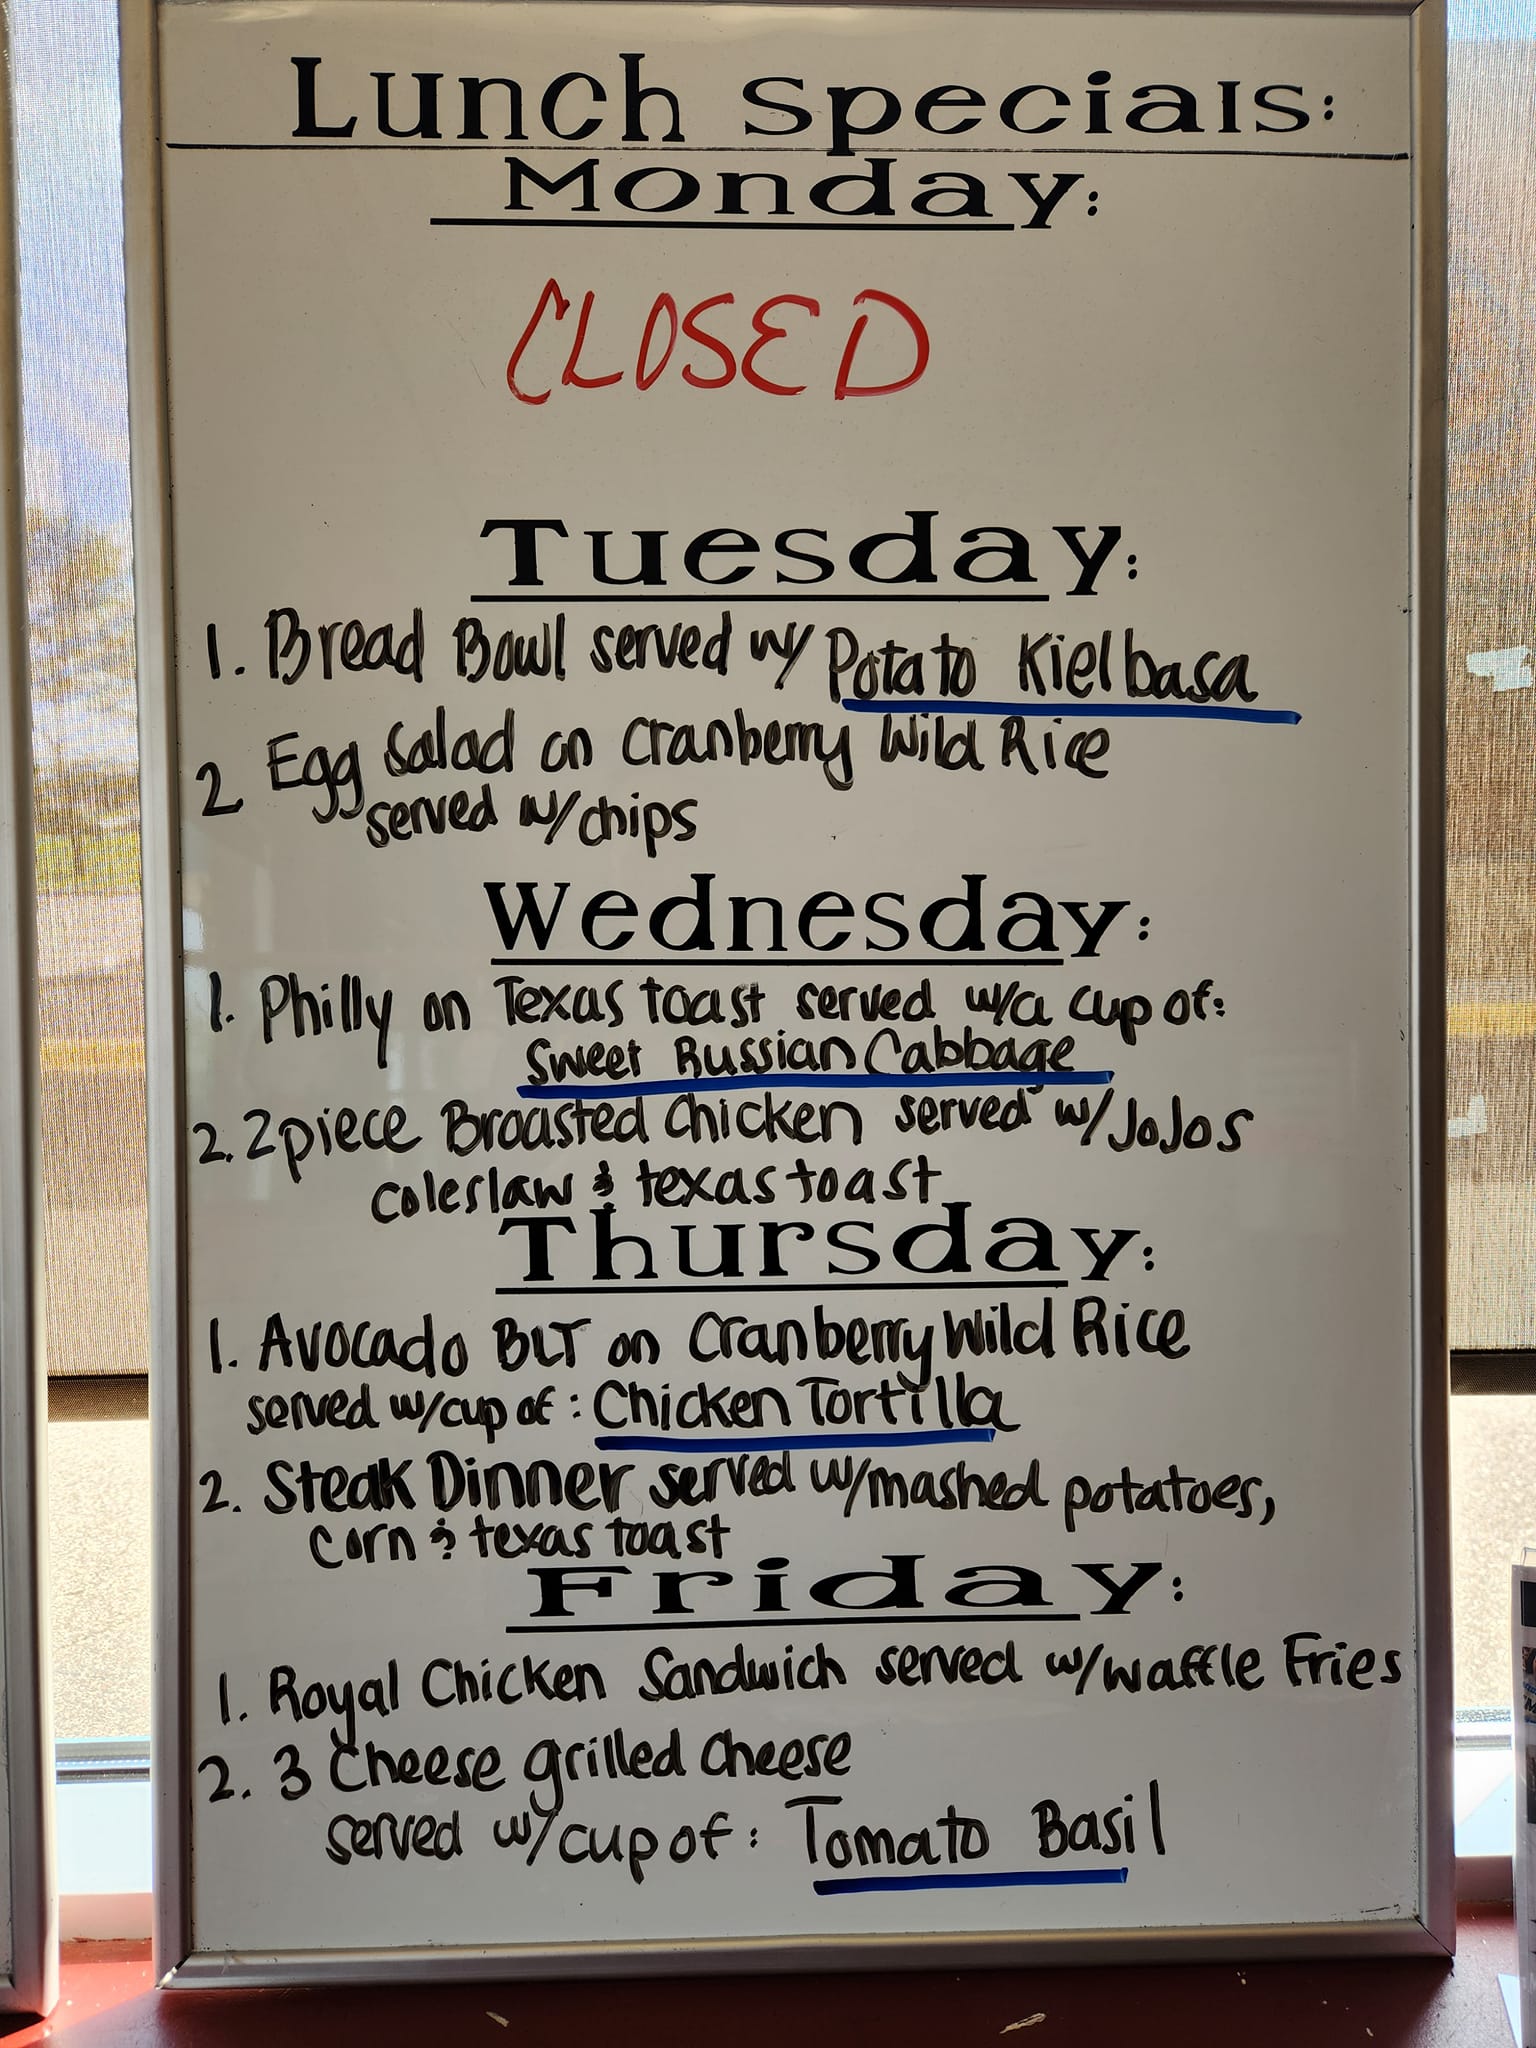 Lunch Specials:
Monday:
CLOSED
Tuesday:
1. Bread Bowl served w/ Potato Kielbasa
2 Egg Salad on Cranberry Wild Rice
served w/chips
Wednesday:
1. Philly on Texas toast served w/a cup of:
Sweet Russian Cabbage
2. 2piece Broasted Chicken served w/JoJos
coleslaw & texas toast
Thursday:
1. Avocado BLT on Cranberry Wild Rice
served w/cup of: Chicken Tortilla
2. Steak Dinner served w/mashed potatoes,
corn & texas toast
Friday:
1. Royal Chicken Sandwich served w/waffle Fries
2. 3 Cheese grilled cheese
served w/cup of: Tomato Basil